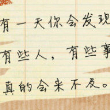 有一天你会发现
有些人，有些事
真的会来不及。